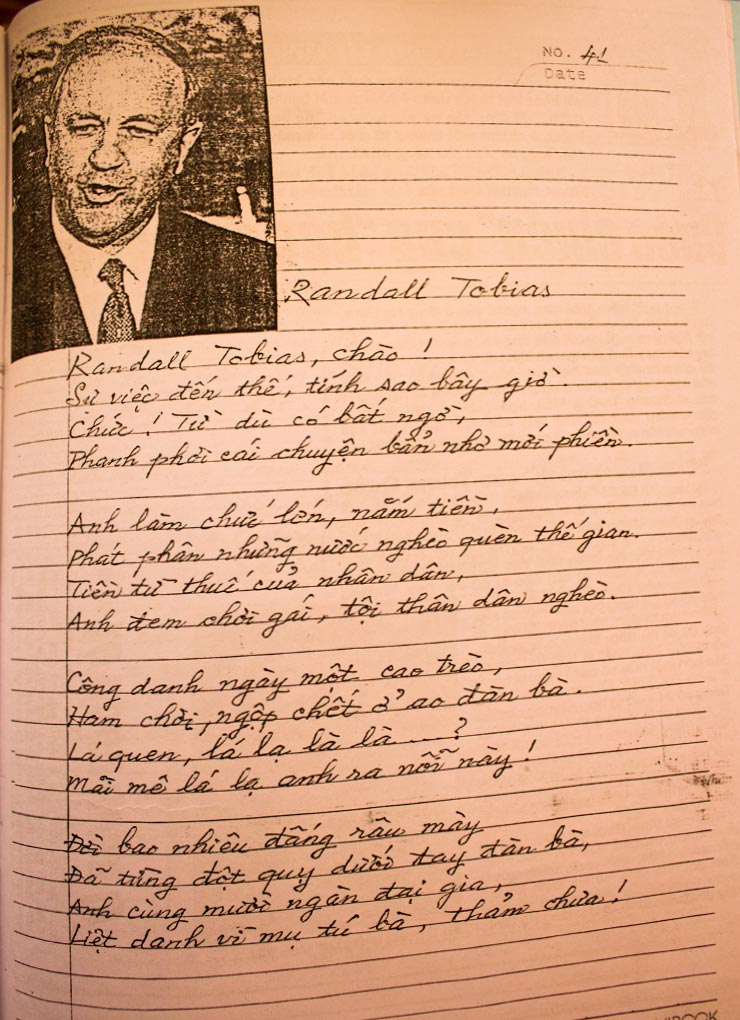 No. 41
Date
Randall Tobias
Randall Tobias, chào !
Sự việc đến thế, tính sao bây giờ.
Chức ! Từ dù có bất ngờ,
Phanh phơi cái chuyện bẩn nhơ mới phiền.
Anh làm chức lớn, nắm tiền,
Phát phân những nước nghèo quèn thế gian.
Tiền từ thuế của nhân dân,
Anh đem chơi gái, tội thân dân nghèo.
Công danh ngày một cao trèo,
Ham chơi, ngộp chết ở ao đàn bà.
Lá quen, lá lạ là là ....?
Mãi mê lá lạ anh ra nỗi này !
Đời bao nhiêu đấng râu mày
Đã từng đột quỵ dưới tay đàn bà,
Anh cùng mười ngàn đại gia,
Liệt danh vì mụ tú bà, thảm chưa !